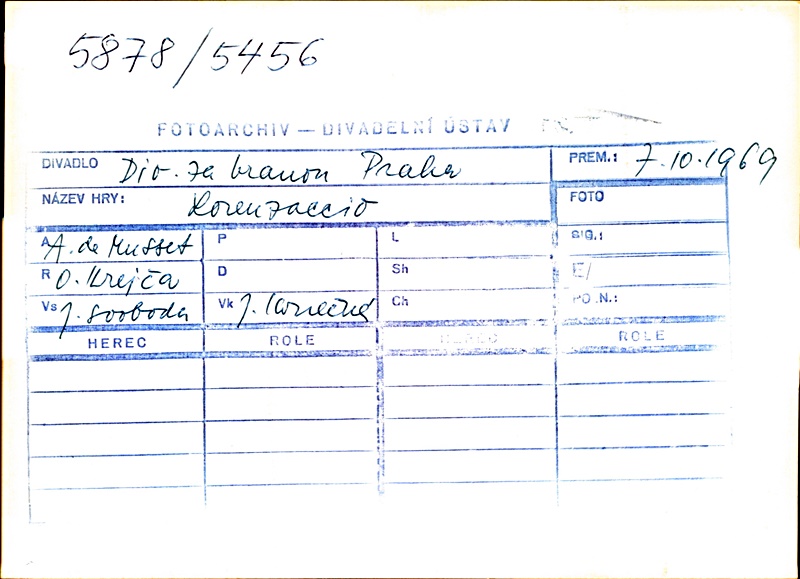 5878/5456
FOTOARCHIV — DIVADELNÍ ÚSTAV
DIVADLO Div. za branou Praha PREM.: 7.10.1969
NÁZEV HRY: Lorenzaccio FOTO
A A. de Musset P L SIG.:
R O. Krejča D Sh E/
Vs J. Svoboda Vk J. Konečná Ch PO .N.:
HEREC ROLE HEREC ROLE